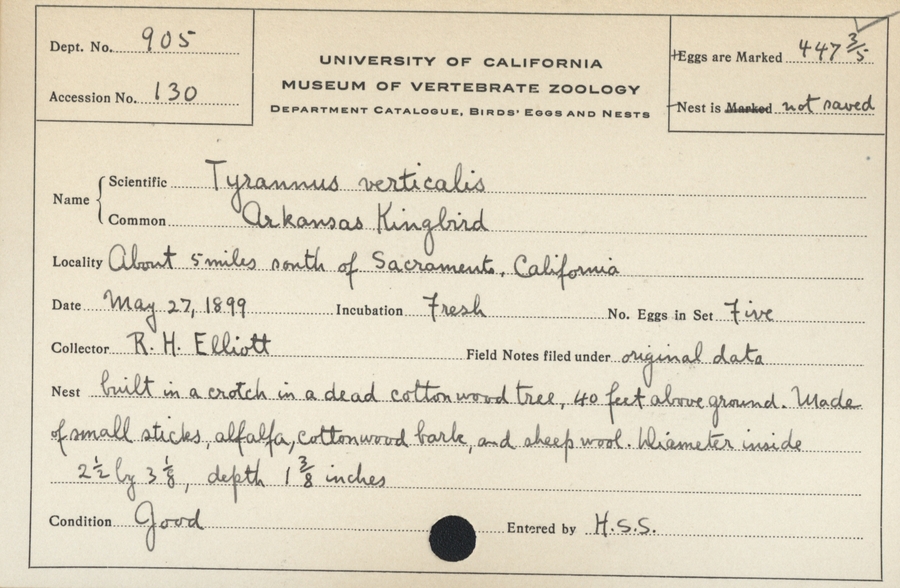 Dept. No. 905
Accession No. 130
UNIVERSITY OF CALIFORNIA
MUSEUM OF VERTEBRATE ZOOLOGY
DEPARTMENT CATALOGUE, BIRDS' EGGS AND NESTS
Eggs are Marked 447 3/5
Nest is Marked not saved
Name
Scientific Tyrannus verticalis
Common Arkansas Kingbird
Locality About 5 miles south of Sacramento, California
Date May 27, 1899 Incubation Fresh No. Eggs in Set Five
Collector R. H. Elliott Field Notes filed under original data
Nest built in a crotch in a dead cottonwood tree, 40 feet above ground. Made
of small sticks, alfalfa, cottonwood bark, and sheep wool. Diameter inside
2 1/2 by 3 1/8, depth 1 3/8 inches
Condition Good Entered by H.S.S.